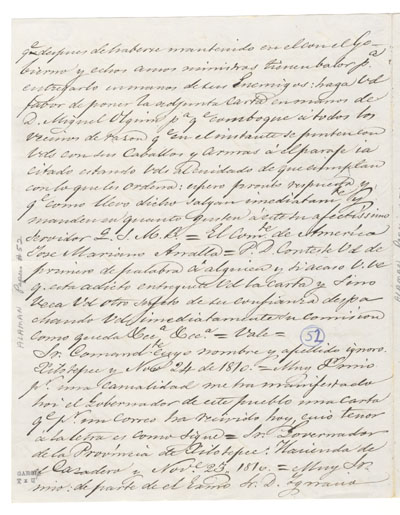 qe. despues de haberse mantenido en el con el Go-
bierno y echos amos ministros tienen balor pa.
entregarlo en manos de sus Enemigos: haga Vd
fabor de poner la adjunta Carta en manos de
D. Miguel pa. qe. comboque a todos los
vecinos de razon qe. en el instante se punten con
Vds con sus Caballos y Armas á el parage ia
citado estando Vds al cuidado de que cumplan
con lo que les ordena: espero pronta respuesta y
qe. como llevo dicho salgan imediatamte. y
manden en quanto gusten a este su afectissimo
servidor Q. S. M. B. = El Comte. de America
Jose Mariano Analla = P. D. Conteste Vd de
primero de palabra a y si acaso V. ve
q. esta adicto entregue Vd la Carta y Sino
veca Vd otro sugeto de su confianza despa
chando Vd imediatamente su comision
como queda Dcca. Dcca. = Vale =
Sr. Comandte. Cuyo nombre y apellido ignoro.
Xilotepec y Nove. 24 de 1810. = Muy Sr. mio
pr. una Camalidad me ha manifestado
hoi el Governador de este pueblo una Carta
qe. pr. un Correo ha recivido hoy, cuio tenor
a la letra es como sigue = Sr. Governador
de la Provincia de Xilotepec. Hacienda de
el Cazadero y Nove. 23, 1810. = Muy Sr.
mio: de parte de el Exmo Sr. D. Ygnacio
52
ALAMAN
GARCIA